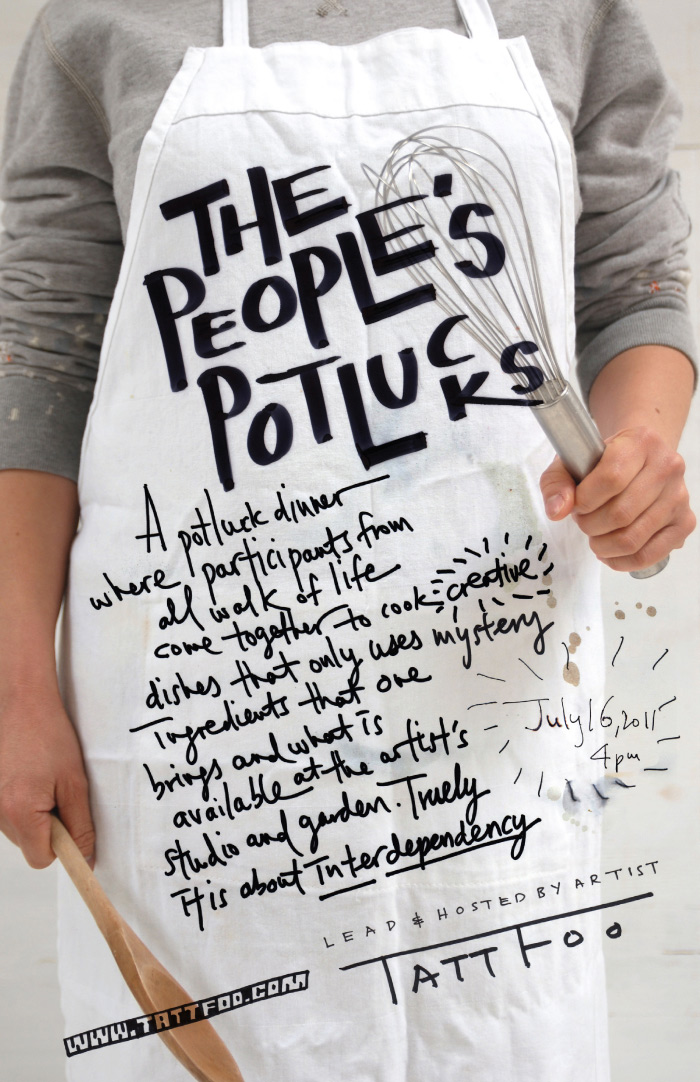 THE
PEOPLE'S
POTLUCKS
A potluck dinner
where participants from
all walk of life
come together to cook creative
dishes that only uses mystery
Ingredients that one
brings and what is
available at the artist's
studio and garden. Truely
It is about Interdependency
July 16, 2011
4pm
LEAD & HOSTED BY ARTIST
TATTFOO
WWW.TATTFOO.COM